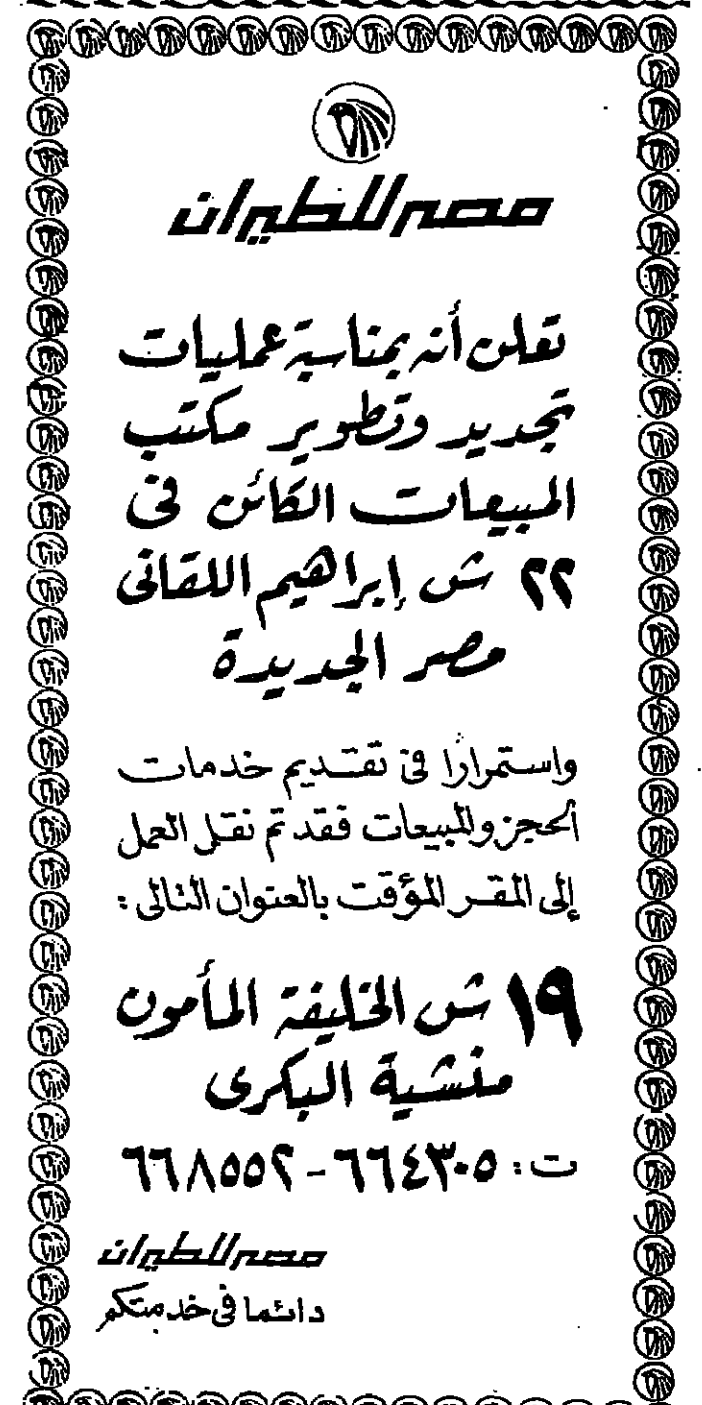 مصر للطيران
تعلن أنه بمناسبة عمليات
تجديد وتطوير مكتب
المبيعات الكائن فى
٢٢ ش إبراهيم اللقانى
مصر الجديدة
واستمرارا فى تقديم خدمات
الحجز والمبيعات فقد تم نقل العمل
إلى المقر المؤقت بالعنوان التالى :
١٩ ش الخليفة المأمون
منشية البكرى
ت : ٦٦٤٣٠٥ - ٦٦٨٥٥٢
مصر للطيران
دائما فى خدمتكم